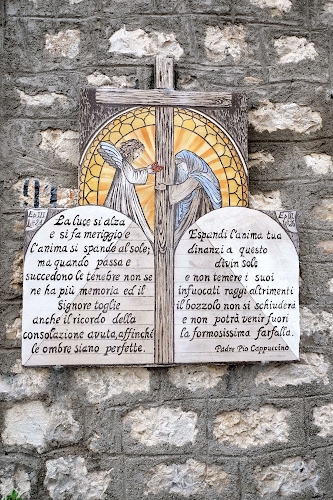 91
Ep. III
La luce si alza
e si fa meriggio e
l'anima si spande al sole;
ma quando passa e
succedono le tenebre non se
ne ha più memoria ed il
Signore toglie
anche il ricordo della
consolazione avuta, affinché
le ombre siano perfette.
Espandi l'anima tua
dinanzi a questo
divin Sole
e non temere i suoi
infuocati raggi altrimenti
il bozzolo non si schiuderà
e non potrà venir fuori
la formosissima farfalla.
Padre Pio Cappuccino